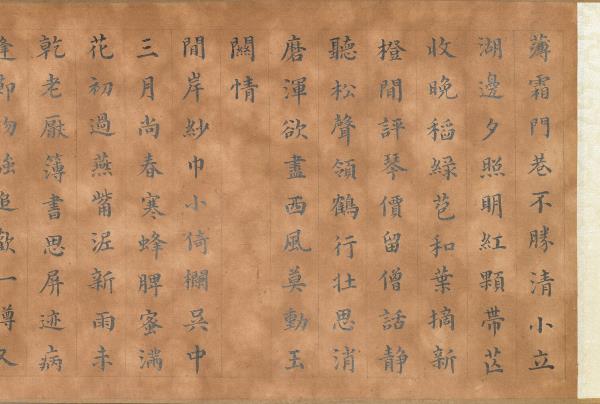 薄霜門巷不勝清小立
湖邊夕照明紅顆帶苉
收晚稻綠苞和葉摘新
橙間評琴價留僧話靜
聽松聲領鶴行壯思消
磨渾欲盡西風莫動玉
關情
閒岸紗巾小倚欄吳中
三月尚春寒蜂脾蜜滿
花初過燕觜泥新雨未
乾老厭簿書思屏迹病
逢節物強追歡一尊又